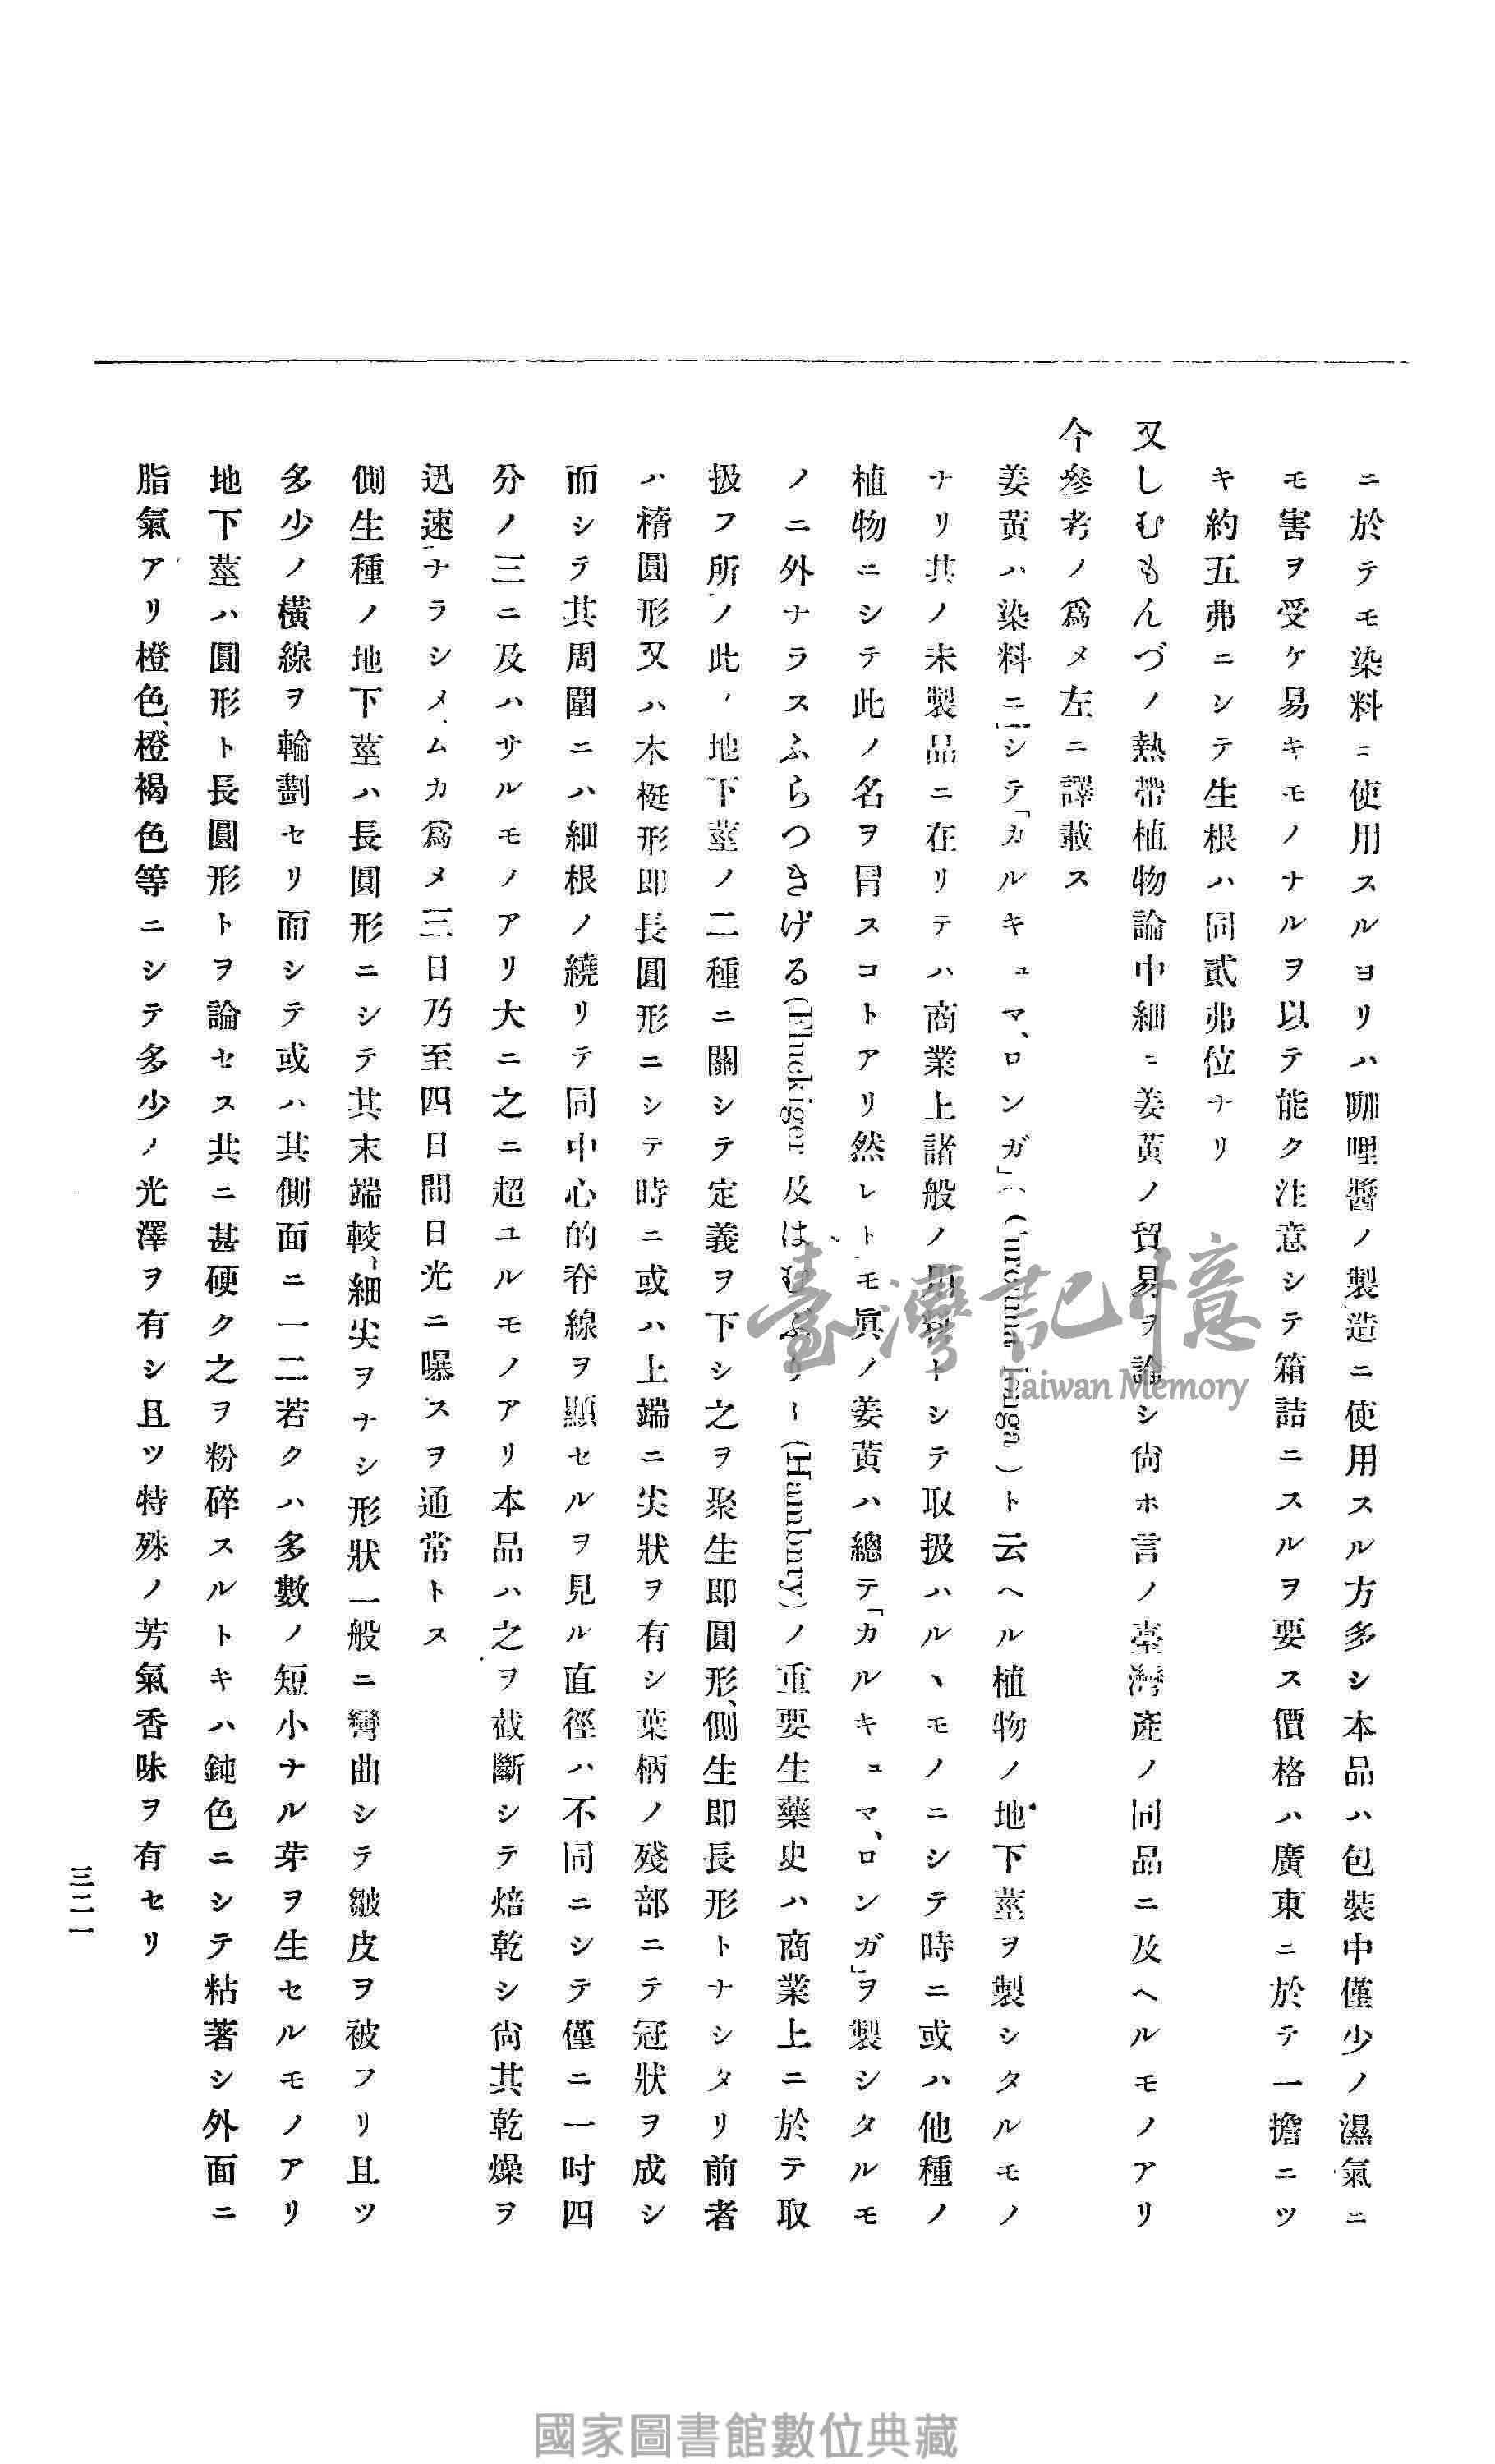 ニ於テモ染料ニ使用スルヨリハ咖哩醬ノ製造ニ使用スル方多シ本品ハ包裝中僅少ノ濕氣ニ
モ害ヲ受ケ易キモノナルヲ以テ能ク注意シテ箱詰ニスルヲ要ス價格ハ廣東ニ於テ一擔ニツ
キ約五弗ニシテ生根ハ同貳弗位ナリ
又しむもんづノ熱帶植物論中細ニ姜黃ノ貿易ヲ論シ尙ホ言ノ臺灣產ノ同品ニ及ヘルモノアリ
今參考ノ爲メ左ニ譯載ス
姜黃ハ染料ニシテ「カルキュマ、ロンガ」(Curcuma longa)ト云ヘル植物ノ地下莖ヲ製シタルモノ
ナリ其ノ未製品ニ在リテハ商業上諸般ノ用料トシテ取扱ハルヽモノニシテ時ニ或ハ他種ノ
植物ニシテ此ノ名ヲ冒スコトアリ然レトモ眞ノ姜黃ハ總テ「カルキュマ、ロンガ」ヲ製シタルモ
ノニ外ナラスふらつきげる(Fluckiger 及はむぶりー(Hambury)ノ重要生藥史ハ商業上ニ於テ取
扱フ所ノ此ノ地下莖ノ二種ニ關シテ定義ヲ下シ之ヲ聚生卽圓形、側生卽長形トナシタリ前者
ハ楕圓形又ハ木梃形卽長圓形ニシテ時ニ或ハ上端ニ尖狀ヲ有シ葉柄ノ殘部ニテ冠狀ヲ成シ
而シテ其周圍ニハ細根ノ繞リテ同中心的脊線ヲ顯セルヲ見ル直徑ハ不同ニシテ僅ニ一吋四
分ノ三ニ及ハサルモノアリ大ニ之ニ超ユルモノアリ本品ハ之ヲ截斷シテ焙乾シ尙其乾燥ヲ
迅速ナラシメムカ爲メ三日乃至四日間日光ニ曝スヲ通常トス
側生種ノ地下莖ハ長圓形ニシテ其末端較細尖ヲナシ形狀一般ニ彎曲シテ皺皮ヲ被フリ且ツ
多少ノ橫線ヲ輪劃セリ而シテ或ハ其側面ニ一二若クハ多數ノ短小ナル芽ヲ生セルモノアリ
地下莖ハ圓形ト長圓形トヲ論セス共ニ甚硬ク之ヲ粉碎スルトキハ鈍色ニシテ粘著シ外面ニ
脂氣アリ橙色、橙褐色等ニシテ多少ノ光澤ヲ有シ且ツ特殊ノ芳氣香味ヲ有セリ
三二一
臺灣記憶
Taiwan Memory
國家圖書館數位典藏